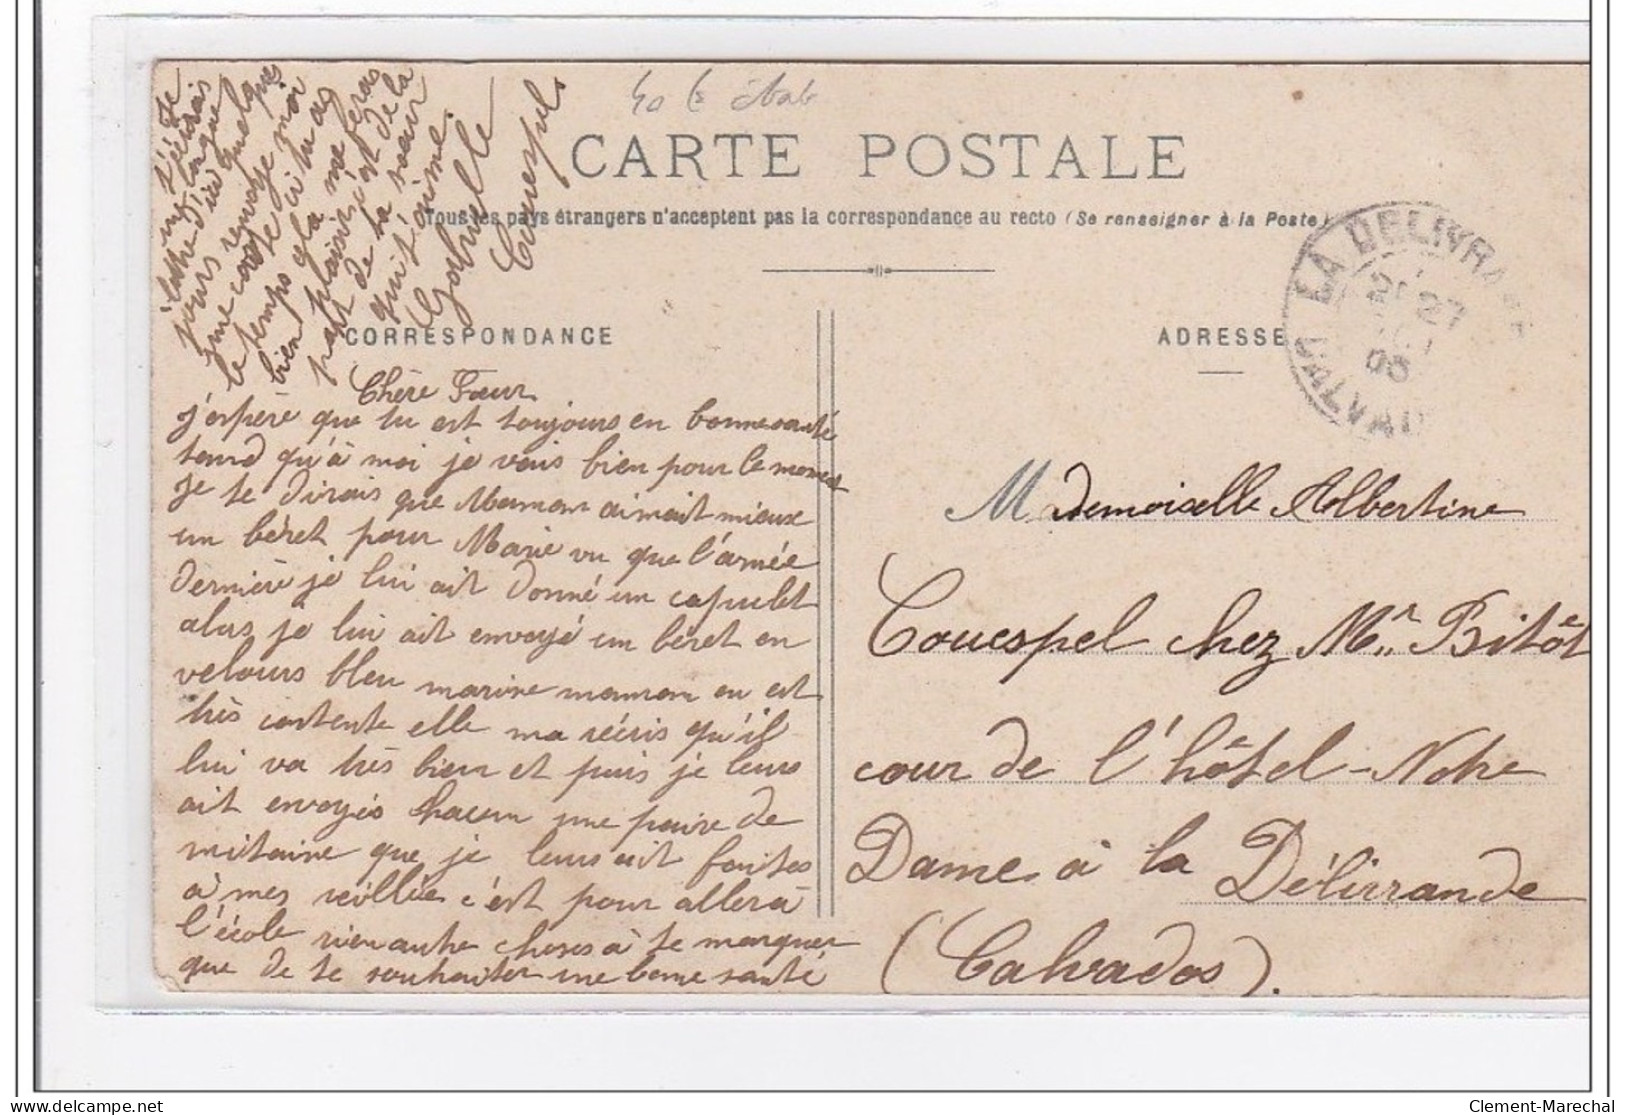 CARTE POSTALE
Tous les pays étrangers n'acceptent pas la correspondance au recto (Se renseigner à la Poste)
CORRESPONDANCE
Chère Sœur
j'espère que tu est toujours en bonne santé
tend qu'à moi je vais bien pour le moment
je te dirais que Maman aimait mieux
un béret pour Marie vu que l'année
dernière je lui ait donné un capulet
alors je lui ait envoyé un béret en
velours bleu marine maman en est
très contente elle ma récris qu'il
lui va très bien et puis je leurs
ait envoyés chacun une paire de
mitaine que je leurs ait faites
à mes veillée c'est pour aller à
l'école rien autre choses à te marquer
que de te souhaiter une bonne santé
je t'écirais
une longue
lettre d'ici quelques
jours renvoye moi
une carte si tu as
le temps cela me feras
bien plaisir c'est de la
part de ta sœur
qui t'aime.
Gabrielle
Couespel
ADRESSE
LA DELIVRANDE
27
08
CALVADOS
Mademoiselle Albertine
Couespel chez Mr. Bitôt
cour de l'hôtel-Notre
Dame à la Délivrande
(Calvados).
Clement-Marechal